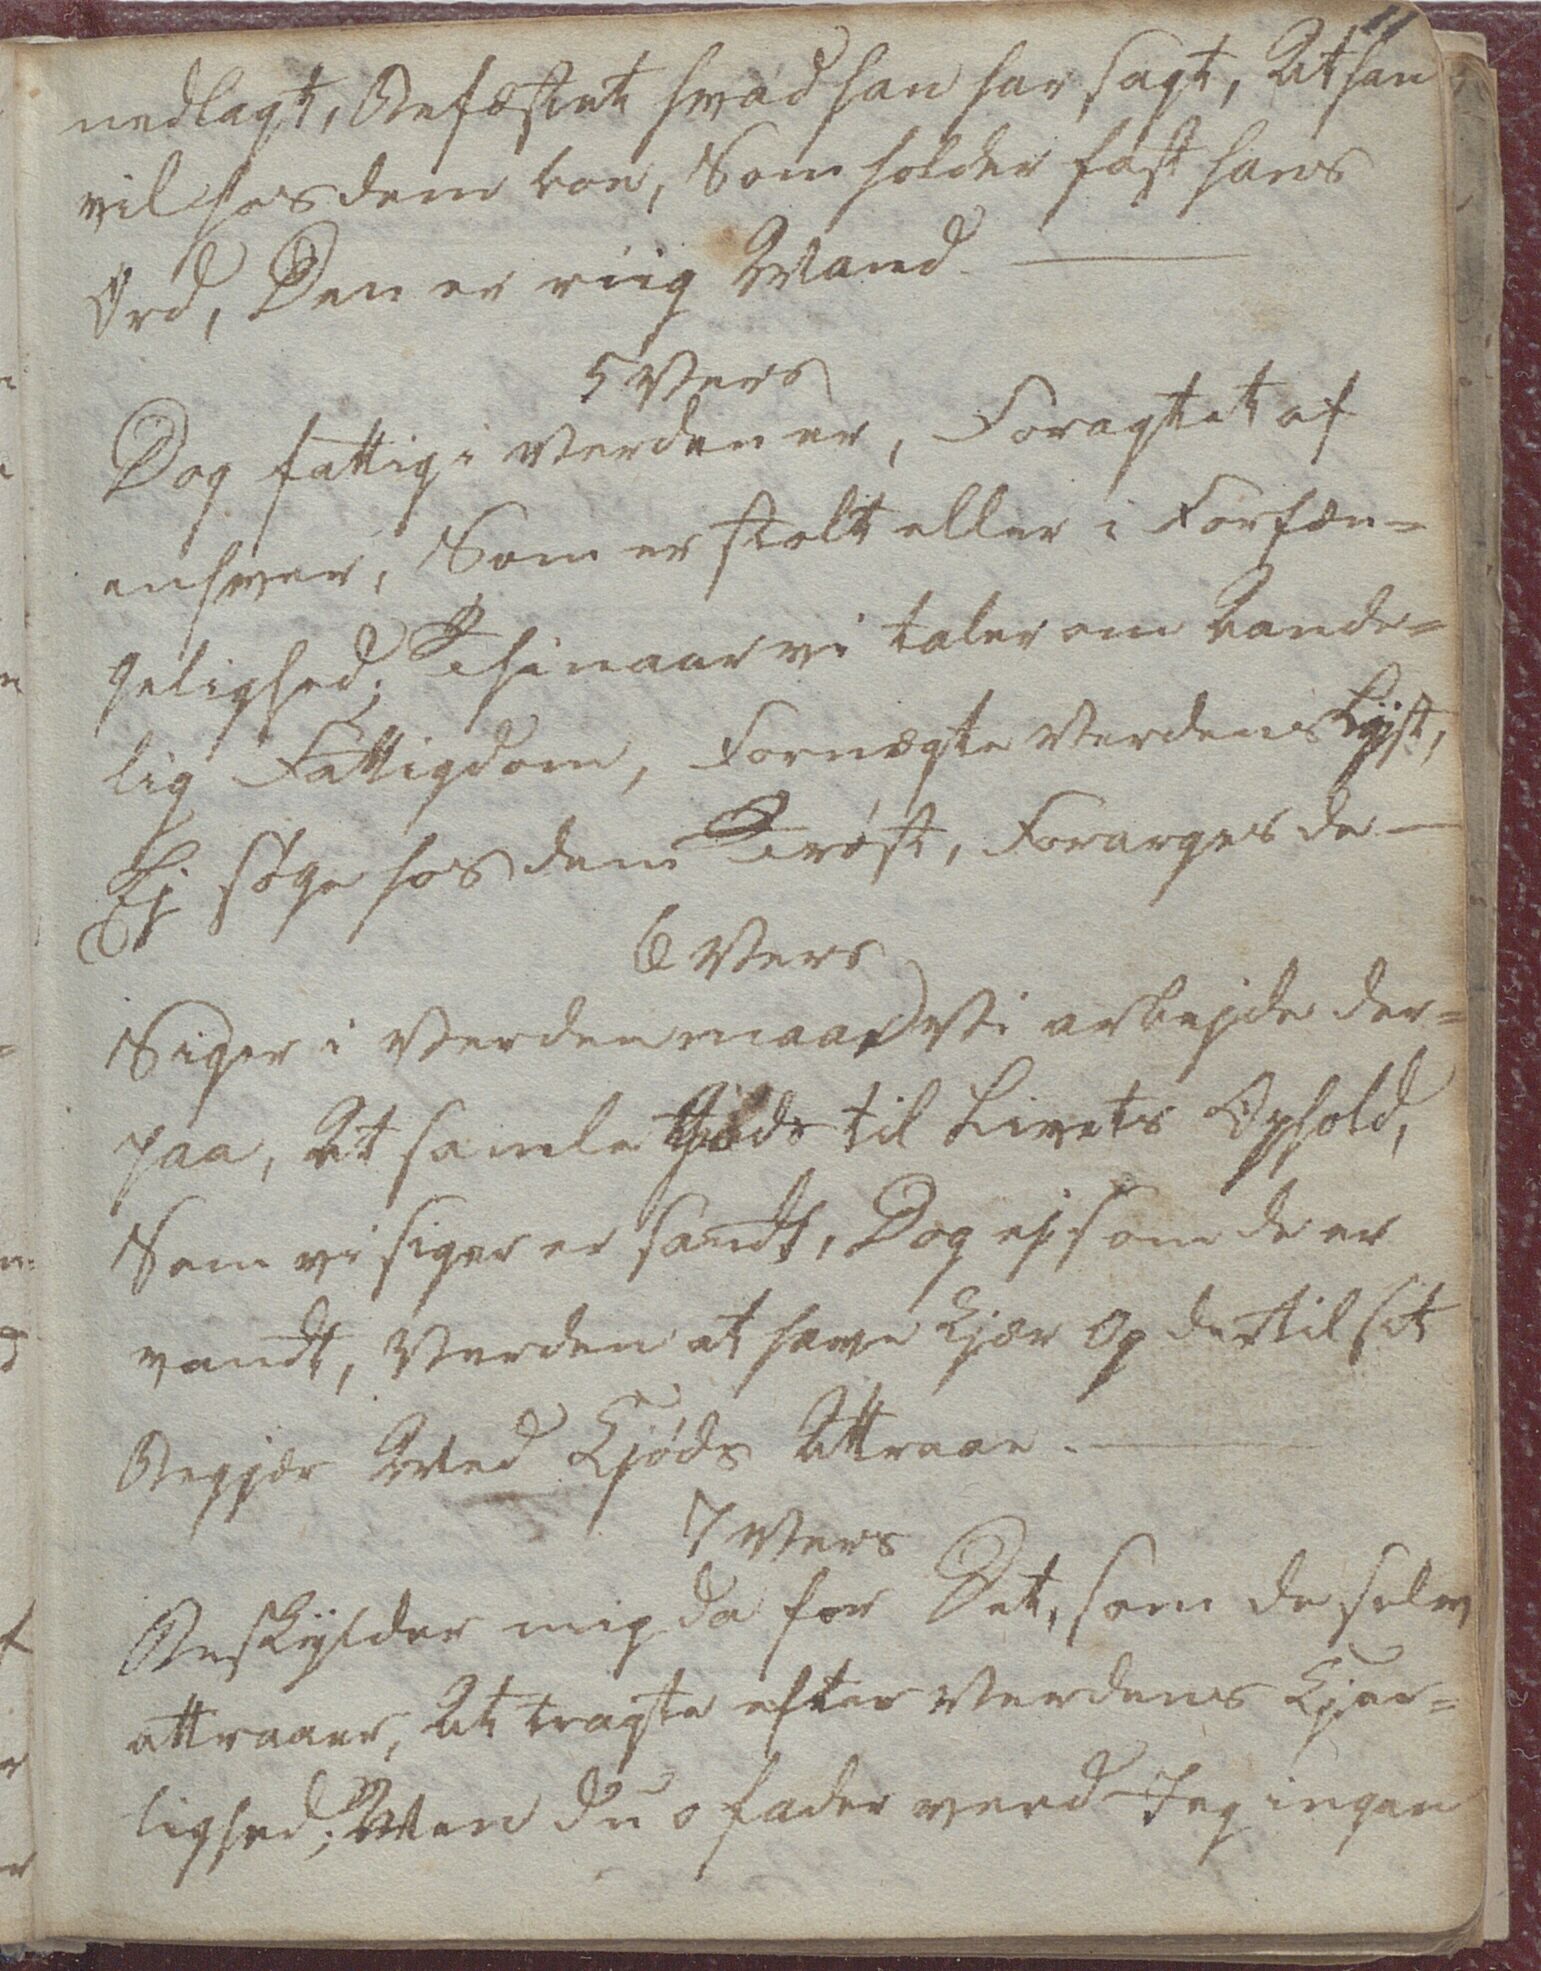 11
nedlagt, Befæstet hvad han har sagt, At han
vil hos dem boe, Som holder fast hans
Ord, Den er riig Mand.
5 Vers
Dog fattig i Verden er, Foragtet af
enhver, Som er stolt eller i Forfæn-
gelighed; Thi naar vi taler om Aande-
lig Fattigdom, Fornægte Verdens Lyst,
Ej søge hos dem Trøst, Forarges de
6 Vers
Siger i Verden maae Vi arbejde der-
paa, At samle Gods til Livets Ophold,
Som vi siger er sandt, Dog ej som de er
vandt, Verden at have kjær Og dertil sit
Begjær Med Kjøds Attraae.
7 Vers
Beskylder mig da for Det, som de selv
attraaer, At tragte efter Verdens Kjær-
lighed; Men du o fader veed Jeg ingen